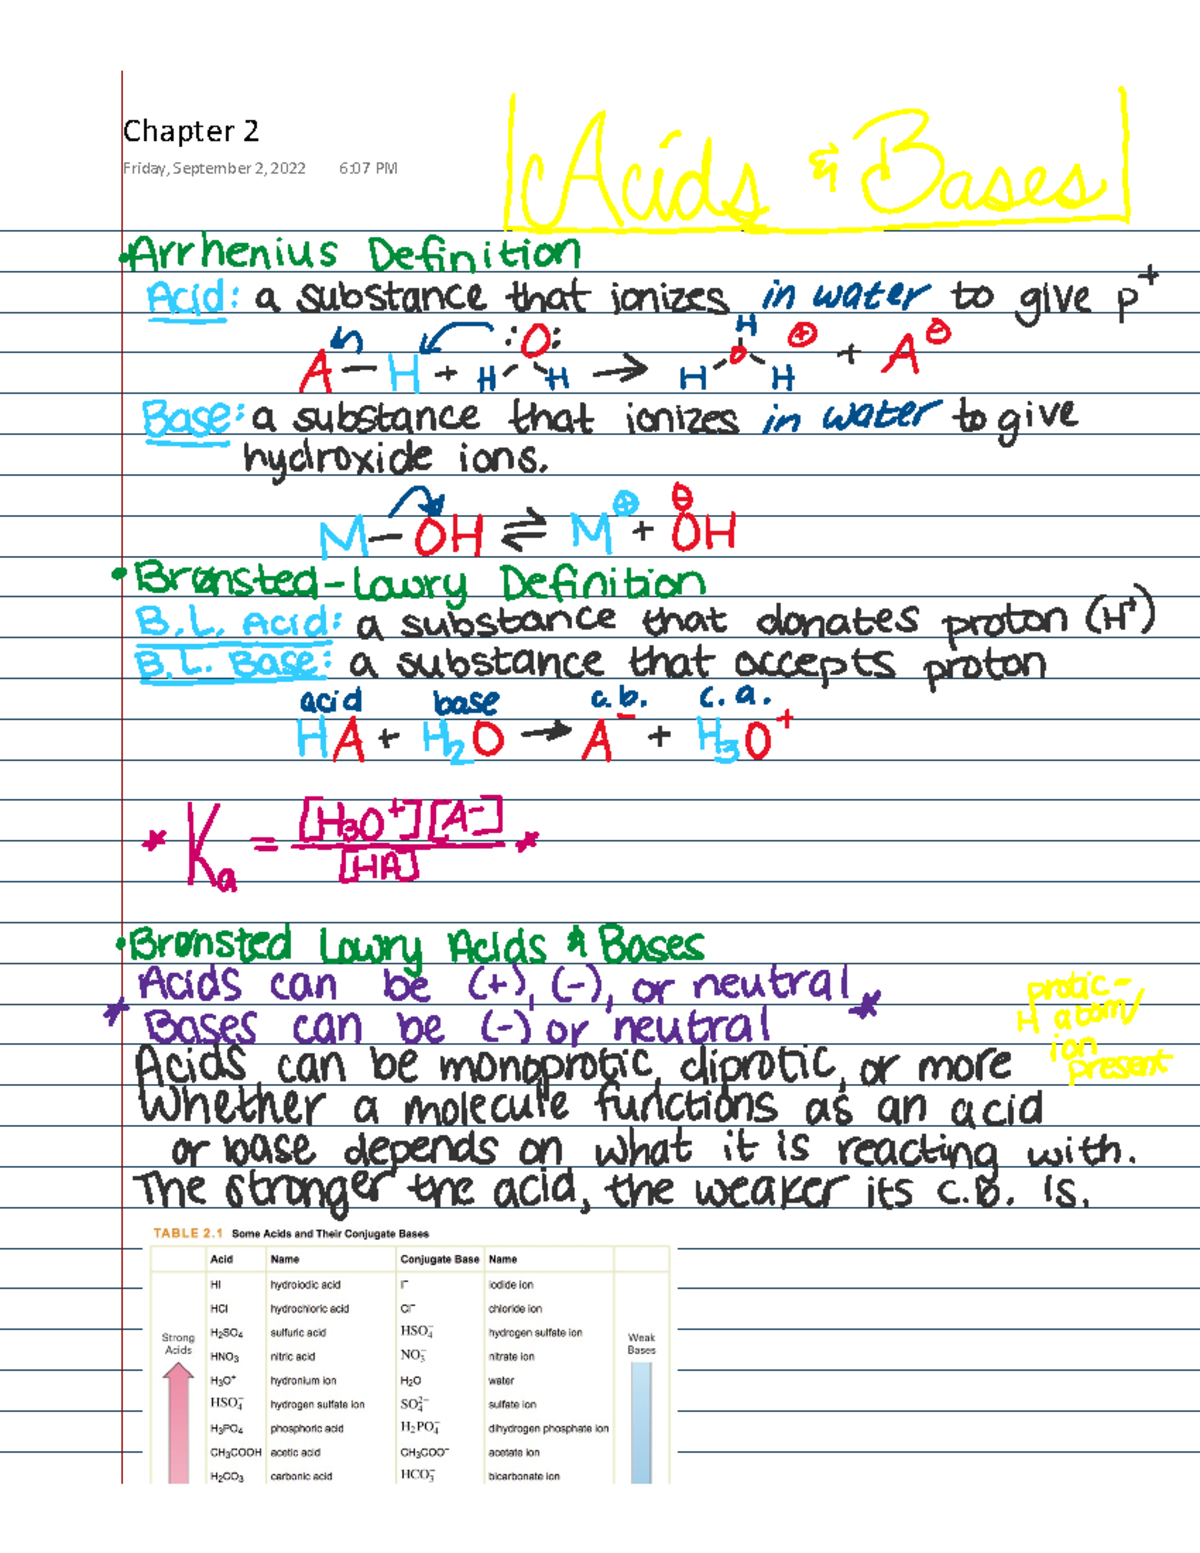 Chapter 2
Friday, September 2, 2022 6:07 PM
Acids & Bases
•Arrhenius Definition
Acid: a substance that ionizes in water to give p⁺
A — H + H :O: H → H O H H ⊕ + A ⊖
Base: a substance that ionizes in water to give
hydroxide ions.
M — OH ⇌ M⊕ + ⊖OH
•Brønsted-Lowry Definition
B.L. Acid: a substance that donates proton (H⁺)
B.L. Base: a substance that accepts proton
acid base c.b. c.a.
HA + H₂O → A⁻ + H₃O⁺
* Kₐ = [H₃O⁺][A⁻] / [HA] *
•Brønsted Lowry Acids & Bases
Acids can be (+), (-), or neutral
* Bases can be (-) or neutral *
protic-
H atom/
ion
present
Acids can be monoprotic, diprotic, or more
Whether a molecule functions as an acid
or base depends on what it is reacting with.
The stronger the acid, the weaker its c.b. is.
TABLE 2.1 Some Acids and Their Conjugate Bases
Acid Name Conjugate Base Name
HI hydroiodic acid I⁻ iodide ion
HCl hydrochloric acid Cl⁻ chloride ion
H₂SO₄ sulfuric acid HSO₄⁻ hydrogen sulfate ion
Strong Acids
Weak Bases
HNO₃ nitric acid NO₃⁻ nitrate ion
H₃O⁺ hydronium ion H₂O water
HSO₄⁻ hydrogen sulfate ion SO₄²⁻ sulfate ion
H₃PO₄ phosphoric acid H₂PO₄⁻ dihydrogen phosphate ion
CH₃COOH acetic acid CH₃COO⁻ acetate ion
H₂CO₃ carbonic acid HCO₃⁻ bicarbonate ion